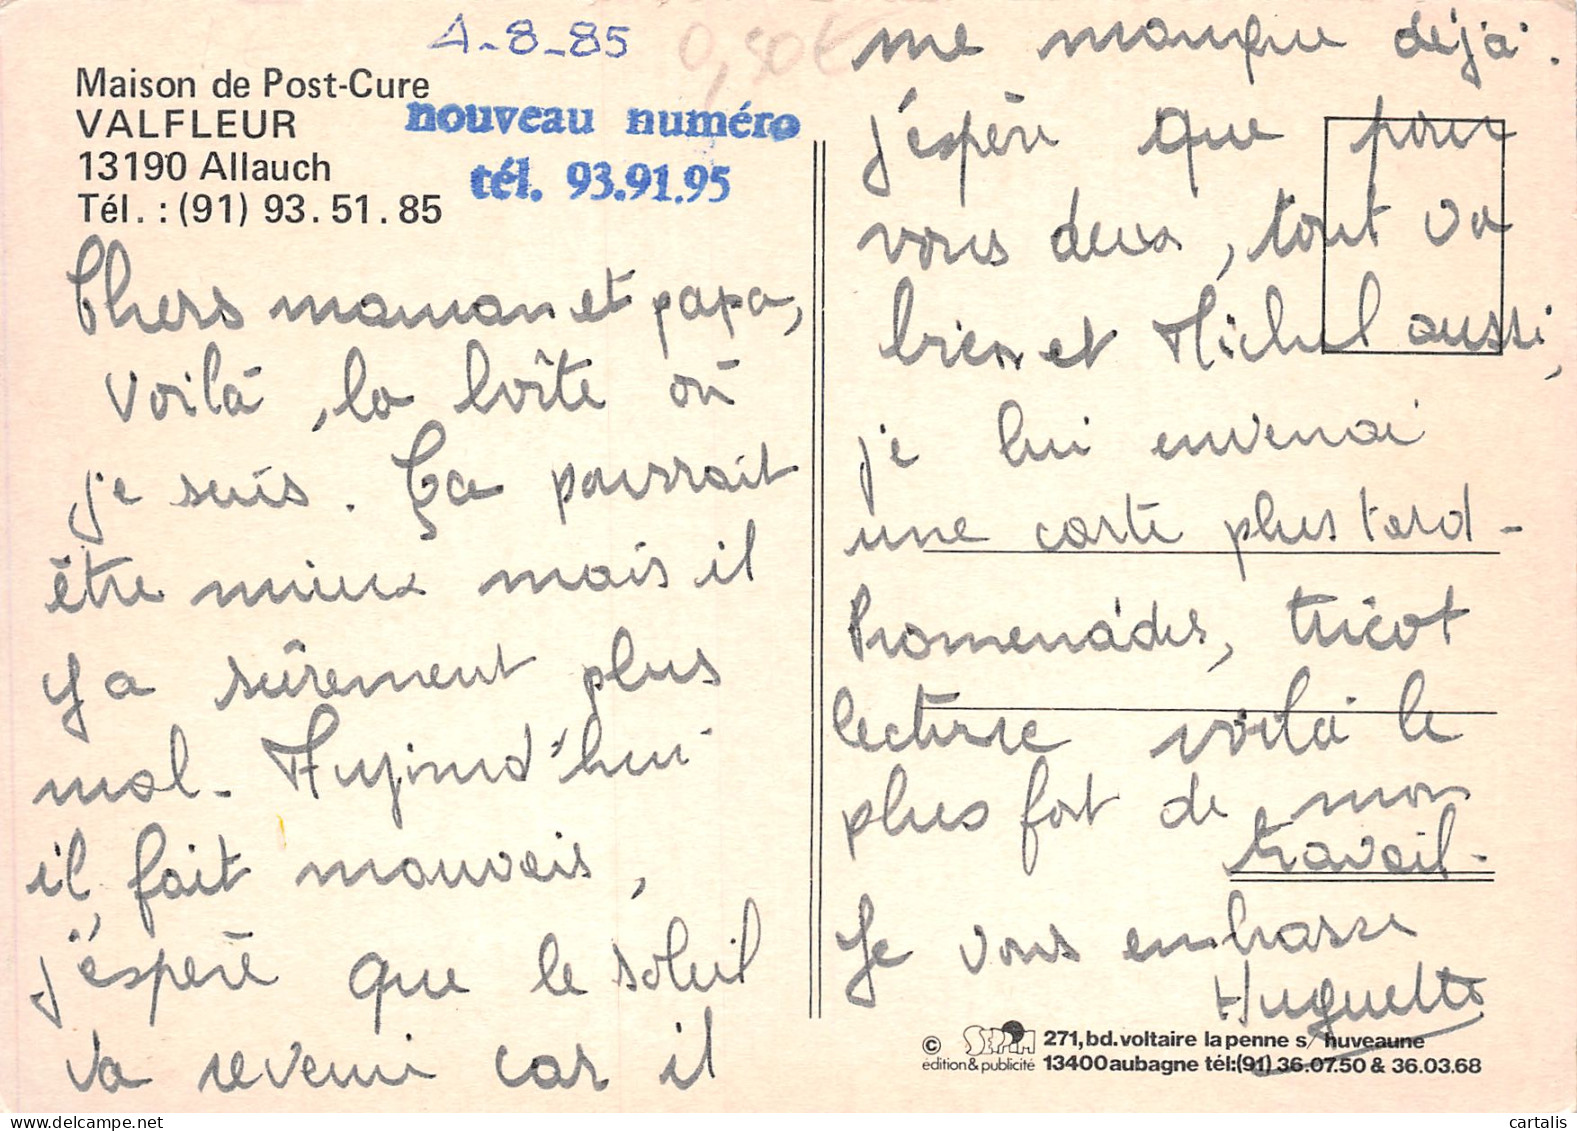 1-8-85
0,50€
Maison de Post-Cure
VALFLEUR
13190 Allauch
Tél. : (91) 93.51.85
nouveau numéro
tél. 93.91.95
Chers maman et papa,
Voilà, la boîte où
je suis. Ça pourrait
être mieux mais il
y a sûrement plus
mal. Aujourd'hui
il fait mauvais,
j'espère que le soleil
va revenir car il
me manque déjà.
j'espère que pour
vous deux, tout va
bien et Michel aussi,
je lui enverrai
une carte plus tard -
Promenades, tricot
lecture voilà le
plus fort de mon
travail -
Je vous embrasse
Huguette
© SEPIA 271, bd. voltaire la penne s/ huveaune
édition & publicité 13400 aubagne tél:(91) 36.07.50 & 36.03.68
cartalis